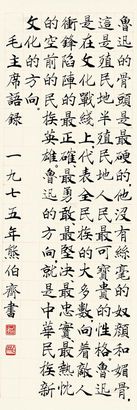 魯迅的骨頭是最硬的,他沒有絲毫的奴顔和媚骨,
這是殖民地半殖民地人民最可寶貴的性格。魯迅
是在文化戰綫上,代表全民族的大多數,向着敵人
衝鋒陷陣的最正確、最勇敢、最堅決、最忠實、最熱忱
的空前的民族英雄。魯迅的方向,就是中華民族新
文化的方向。
毛主席語錄 一九七五年熊伯齊書